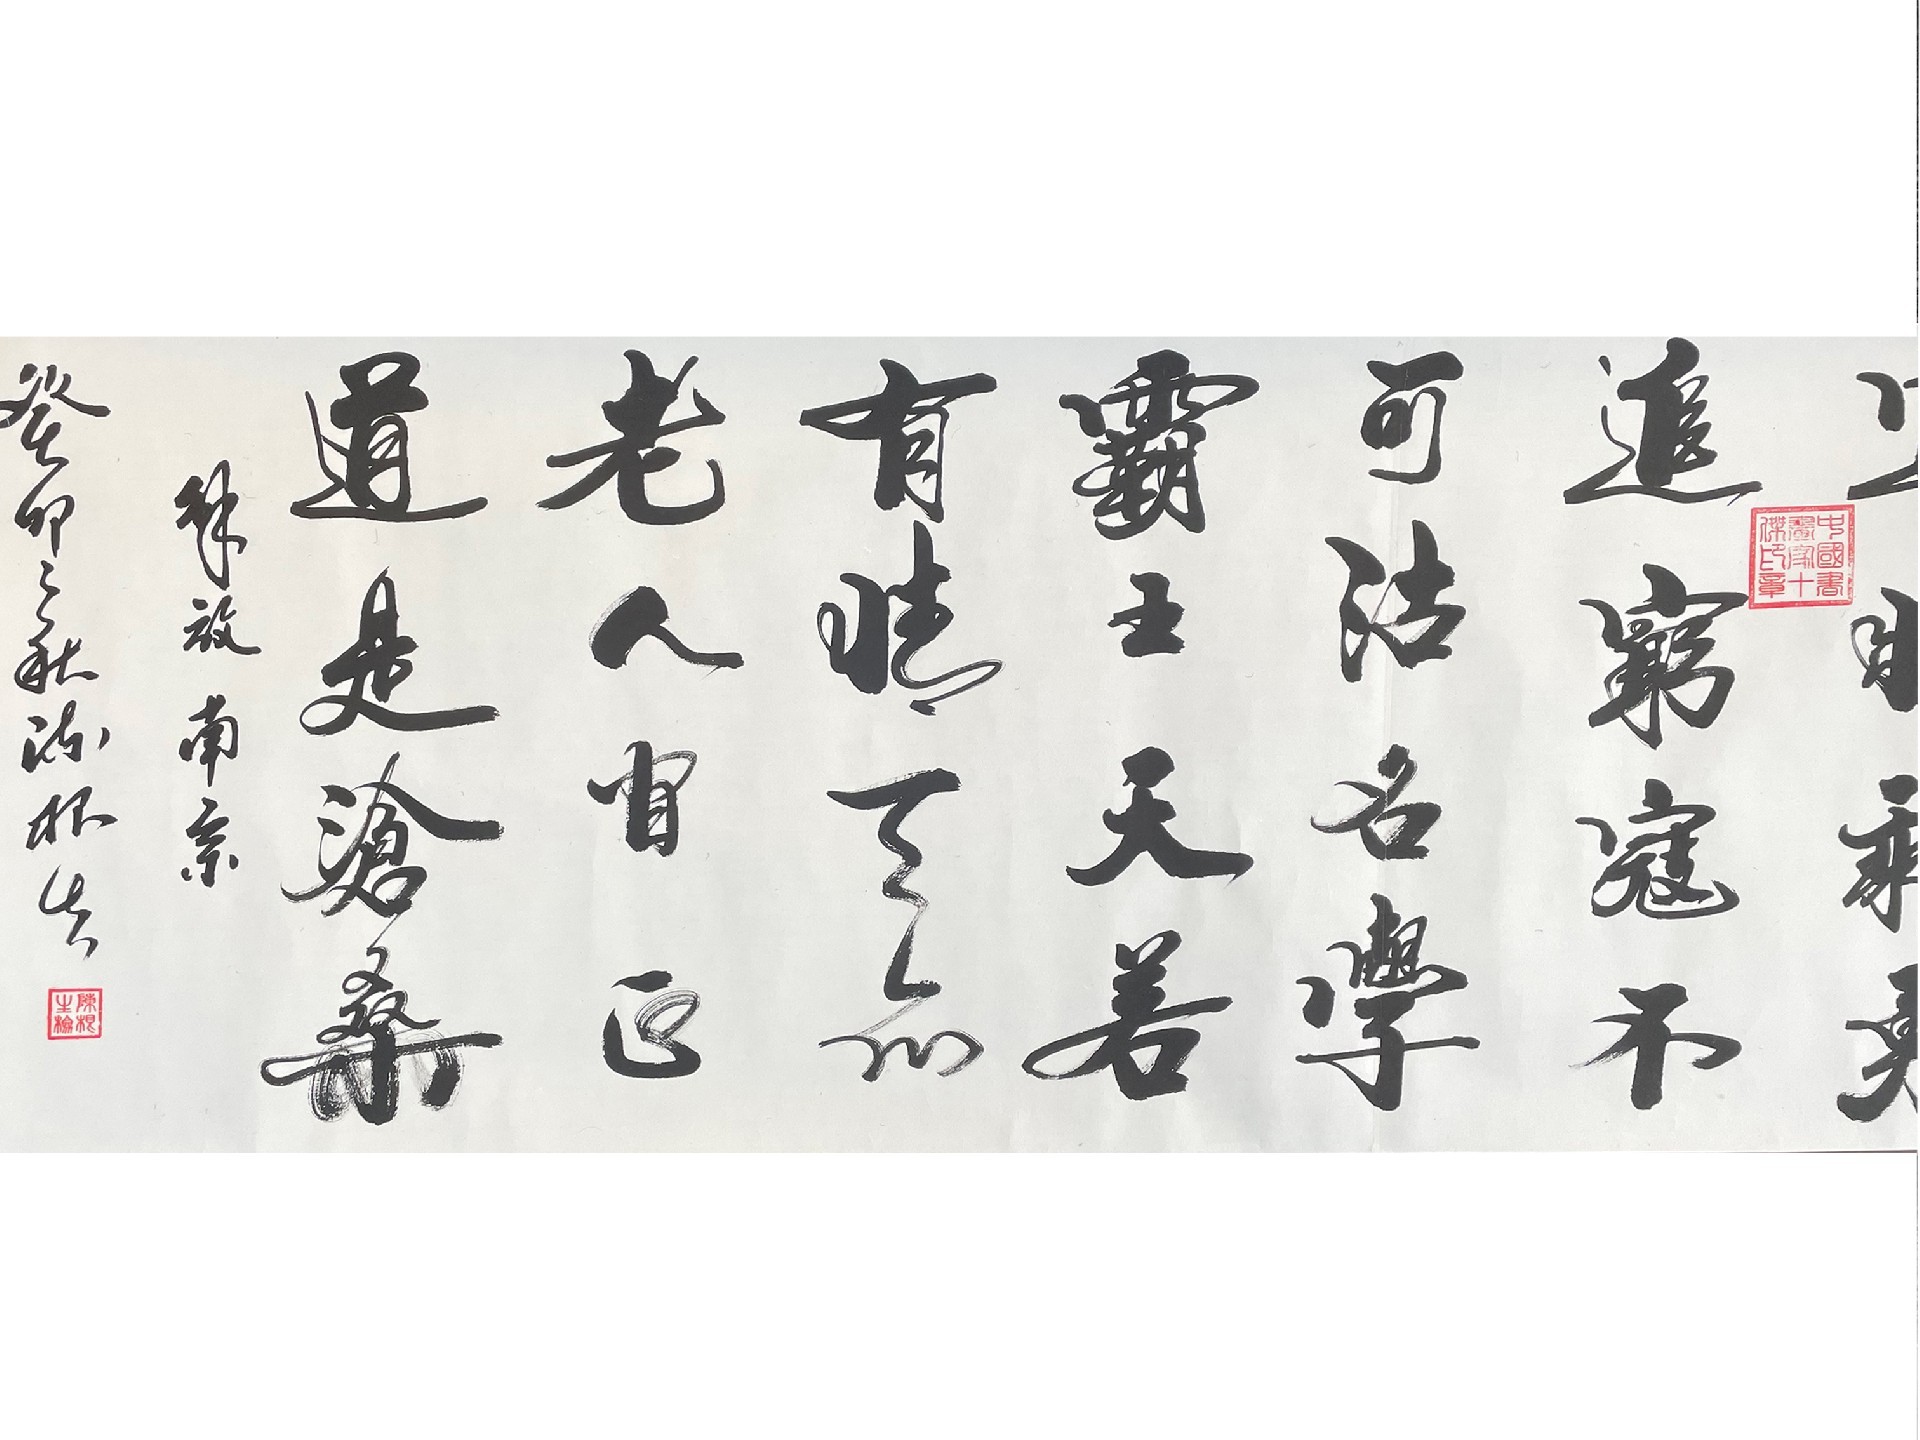 追窮寇不
可沽名學
霸王天若
有情天亦
老人間正
道是滄桑
解放南京
癸卯之秋陳根生
中國書
畫家十
傑印章
陳根
生